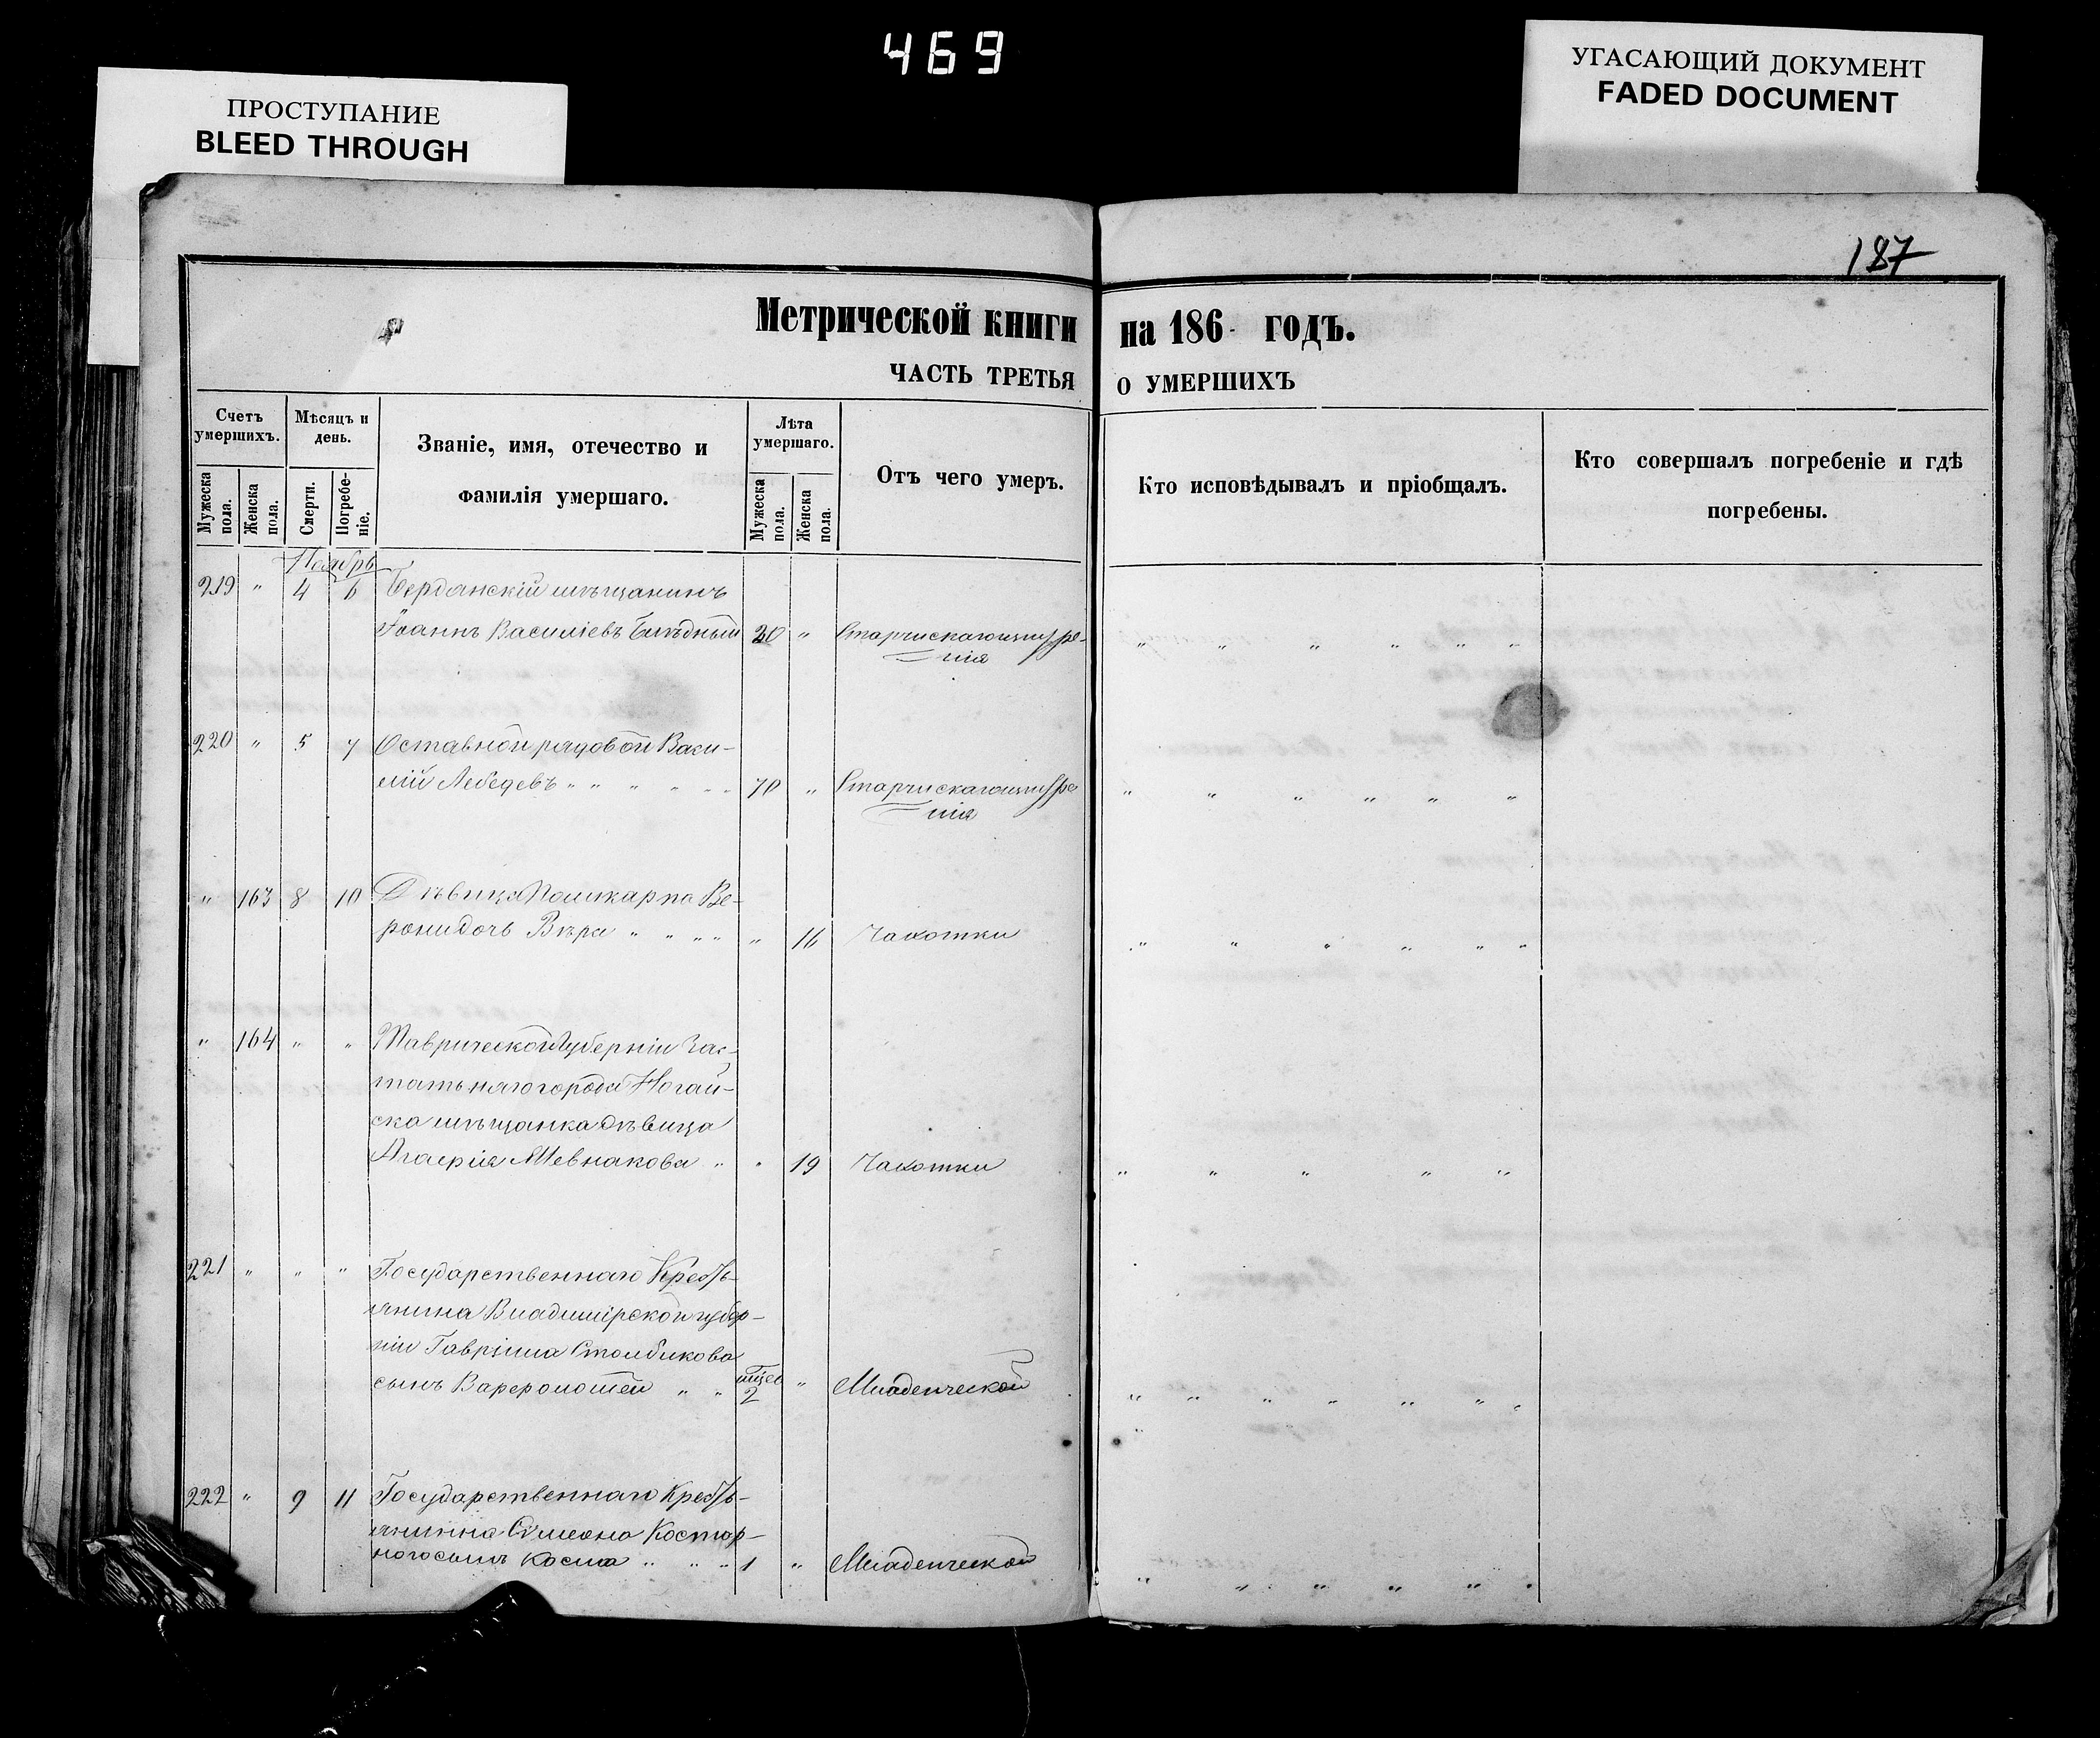 469
ПРОСТУПАНИЕ
BLEED THROUGH
УГАСАЮЩИЙ ДОКУМЕНТ
FADED DOCUMENT
187
Метрической книги на 186 годъ.
ЧАСТЬ ТРЕТЬЯ О УМЕРШИХЪ
Счетъ умершихъ.
Мужеска пола.
Женска пола.
Мѣсяцъ и день.
Смерти.
Погребе-ніе.
Званіе, имя, отечество и
фамилія умершаго.
Лѣта умершаго.
Мужеска пола.
Женска пола.
Отъ чего умеръ.
Кто исповѣдывалъ и пріобщалъ.
Кто совершалъ погребеніе и гдѣ
погребены.
Ноябрь
219 " 4 6 Бердянскій мѣщанинъ
Іоаннъ Василіевъ Блѣдный 20 "
220 " 5 7 Оставной рядовой Васи-
лій Лебедевъ " " " " " " 70 "
" 163 8 10 Дѣвица Поликарпа Ве-
рони дочь Вѣра " " " " " 16 Чахотки
" 164 " " Таврической Губерніи Зас-
татънаго города Ногай-
ска мѣщанка дѣвица
Шевнакова " " 19 Чахотки
221 " " " Государственнаго Кресть-
янина Владимірской губер-
ніи Гавріила Столбикова
сынъ Варфоломей " " 2 " Младенческой
222 " 9 11 Государственнаго Кресть-
янина Симеона Костор-
ного сынъ Косма " " " 1 " Младенческой